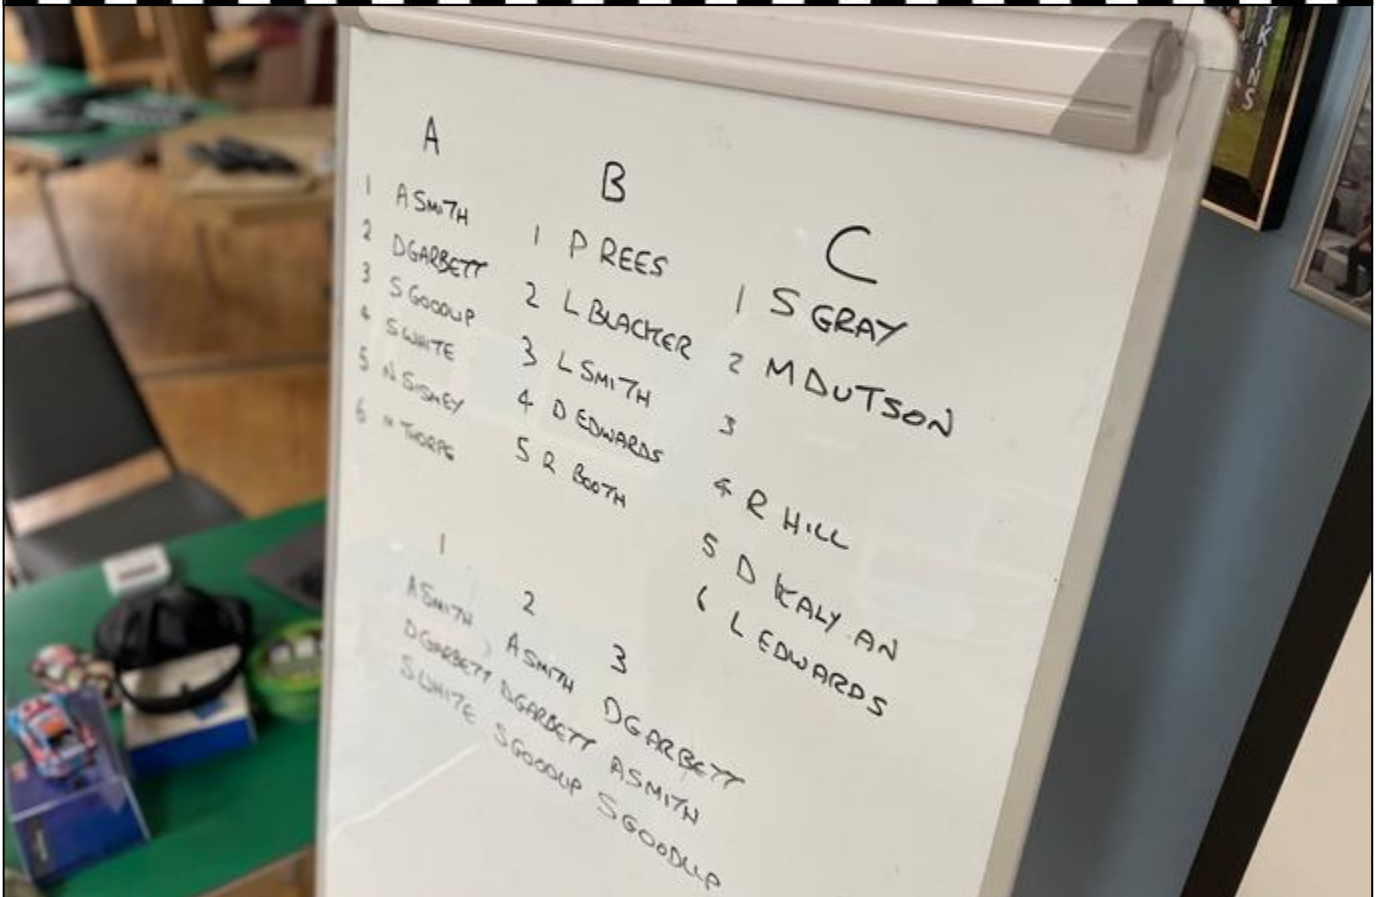 A
1 A SMITH
2 D GARBETT
3 S GOODLIP
4 S WHITE
5 N SISMEY
6 M THORPE
B
1 P REES
2 L BLACKER
3 L SMITH
4 D EDWARDS
5 R BOOTH
C
1 S GRAY
2 M DUTSON
3
4 R HILL
5 D KALYAN
6 L EDWARDS
1
A SMITH
D GARBETT
S WHITE
2
A SMITH
D GARBETT
S GOODLIP
3
D GARBETT
A SMITH
S GOODLIP
KINS